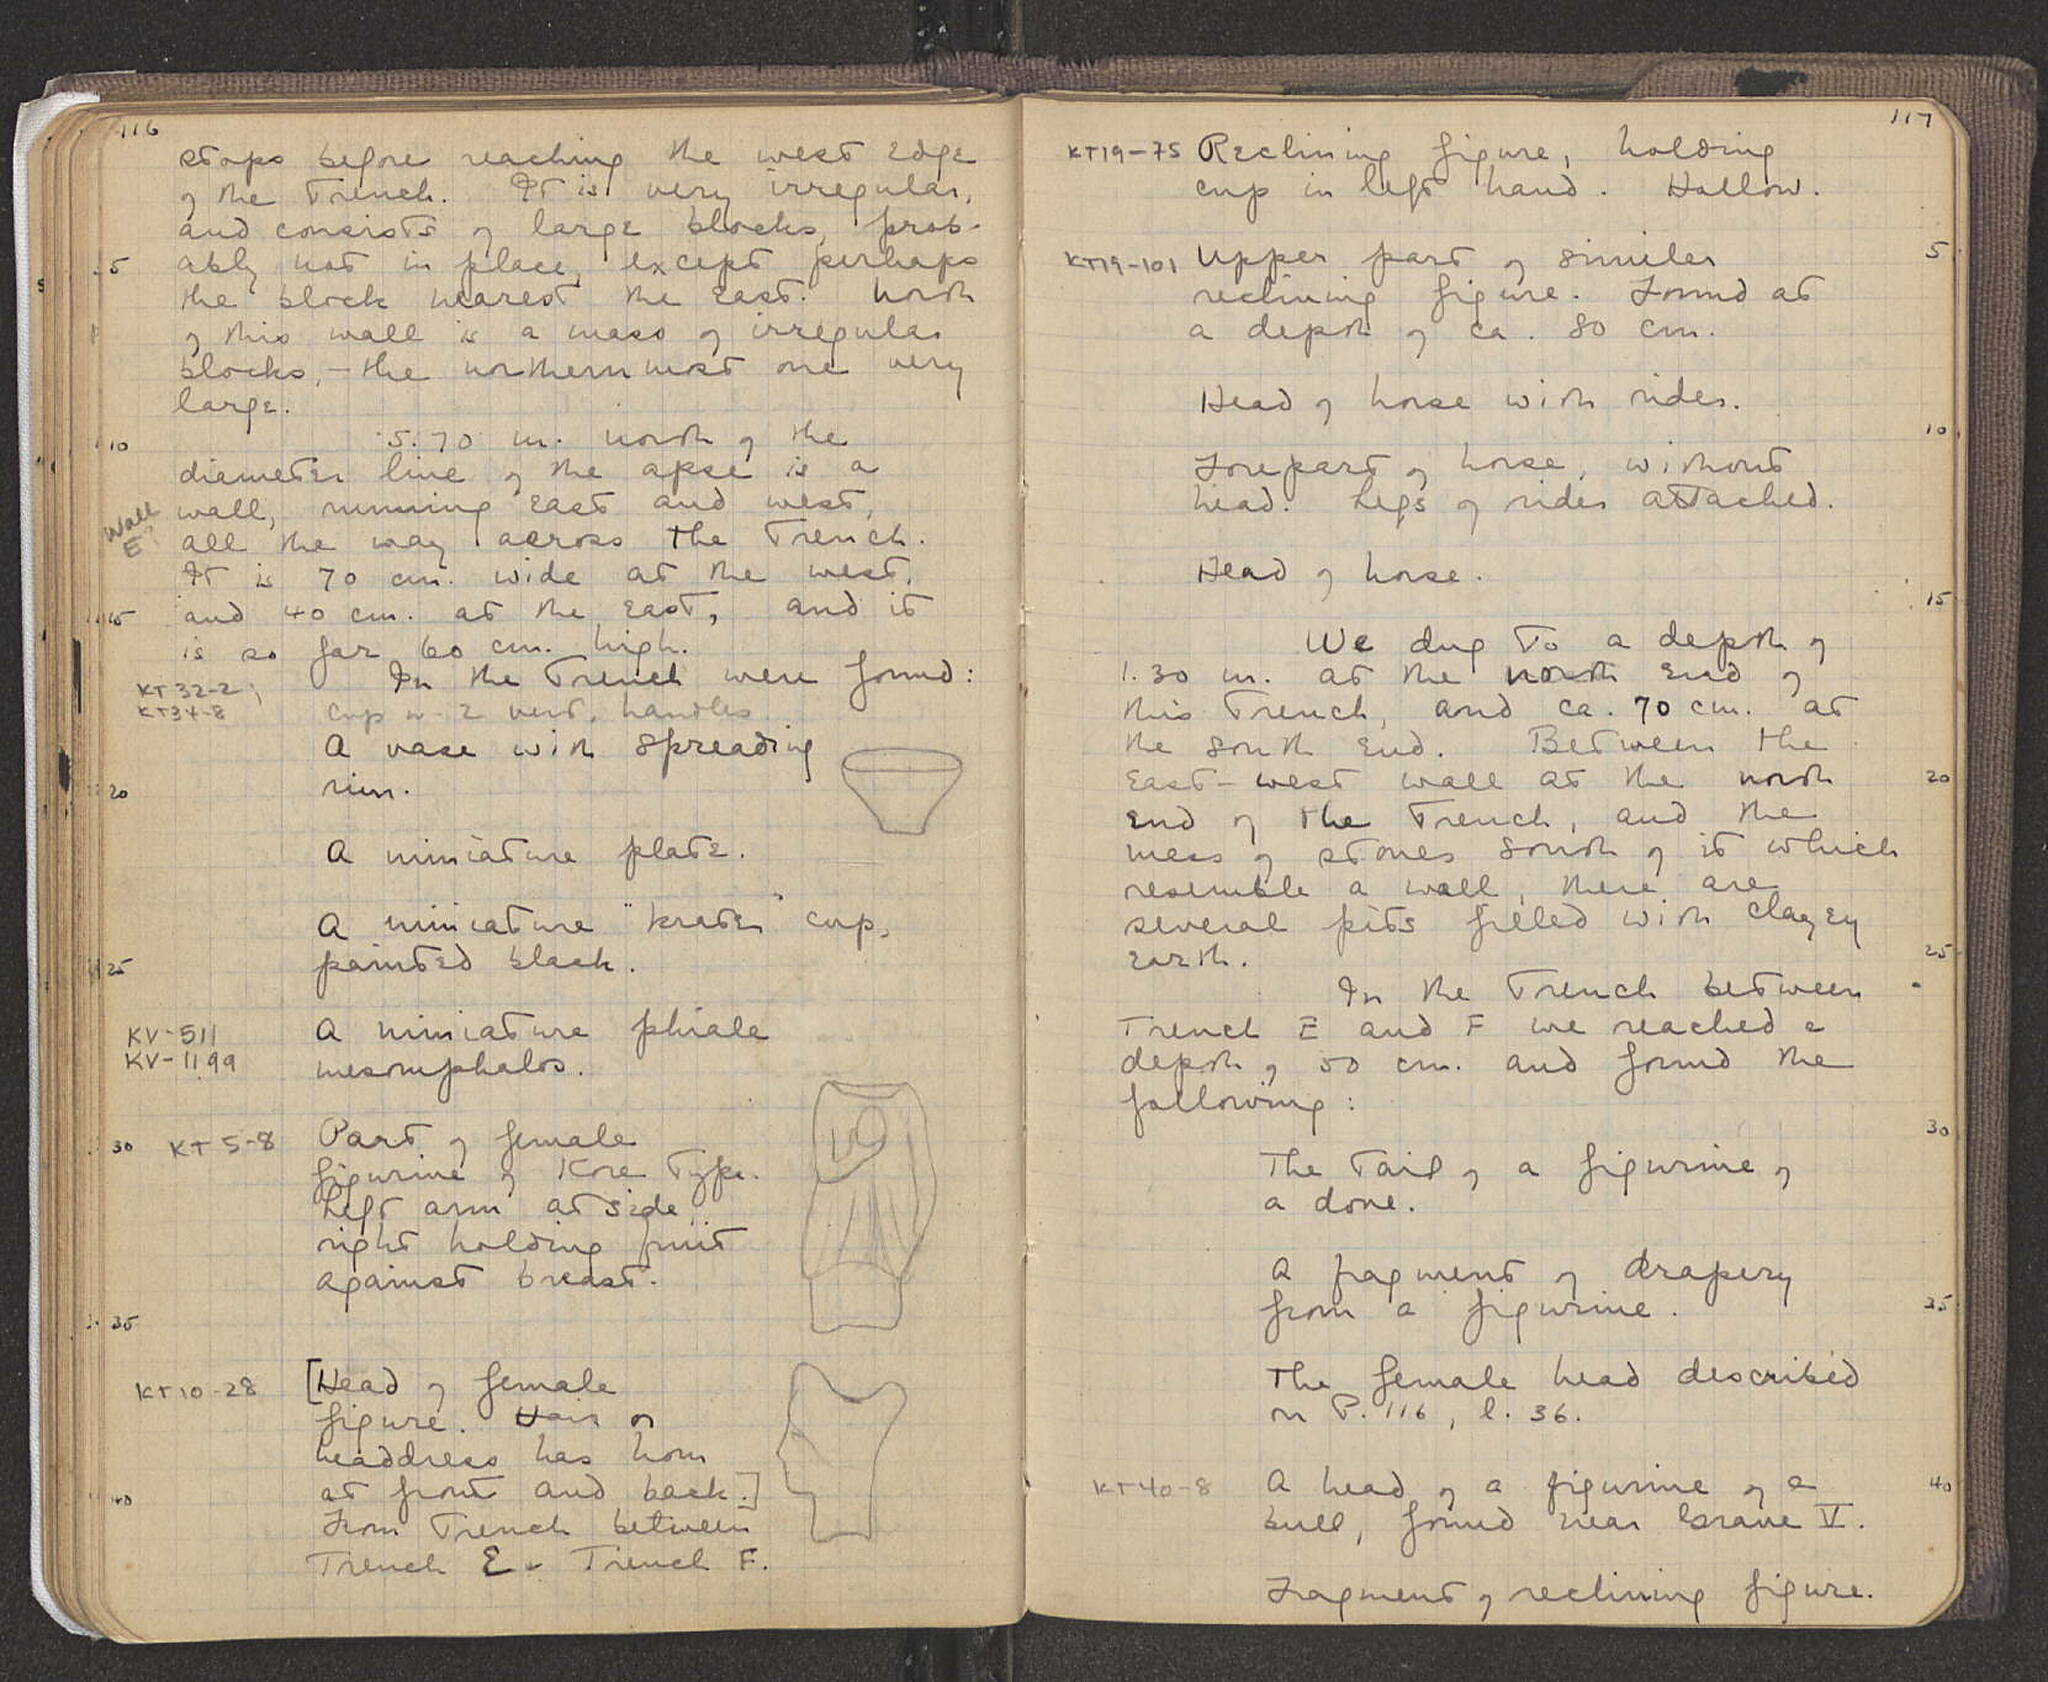 116
stops before reaching the west edge
of the Trench. It is very irregular,
and consists of large blocks, prob-
5 ably not in place, except perhaps
the block nearest the East. North
of this wall is a mass of irregular
blocks, - the northernmost one very
large.
10 5.70 m. north of the
diameter line of the apse is a
Wall E wall, running East and west,
all the way across the Trench.
It is 70 cm. wide at the west,
15 and 40 cm. at the East, and it
is so far 60 cm. high.
KT 32-2; In the Trench were found:
KT 34-8 cup w. 2 vert. handles
A vase with spreading
20 rim.
A miniature plate.
A miniature "krater" cup,
25 painted black.
KV-511 A miniature phiale
KV-1199 mesomphalos.
30 KT 5-8 Part of female
figurine of Kore Type.
Left arm at side,
right holding fruit
against breast.
35
KT 10-28 [Head of female
figure. Hair or
headdress has horn
40 at front and back.]
From Trench between
Trench E - Trench F.
117
KT19-75 Reclining figure, holding
cup in left hand. Hollow.
KT19-101 Upper part of similar 5
reclining figure. Found at
a depth of ca. 80 cm.
Head of horse with rider.
10
Forepart of horse, without
head. Legs of rider attached.
Head of horse.
15
We dug To a depth of
1.30 m. at the north End of
this Trench, and ca. 70 cm. at
the south End. Between the
East-west wall at the north 20
End of the Trench, and the
mass of stones south of it which
resemble a wall, there are
several pits filled with clayey
Earth. 25
In the Trench between
Trench E and F we reached a
depth of 50 cm. and found the
following:
30
The Tail of a figurine of
a dove.
A fragment of drapery
from a figurine. 35
The female head described
on P. 116, l. 36.
KT 40-8 A head of a figurine of a 40
bull, found near Grave V.
Fragment of reclining figure.